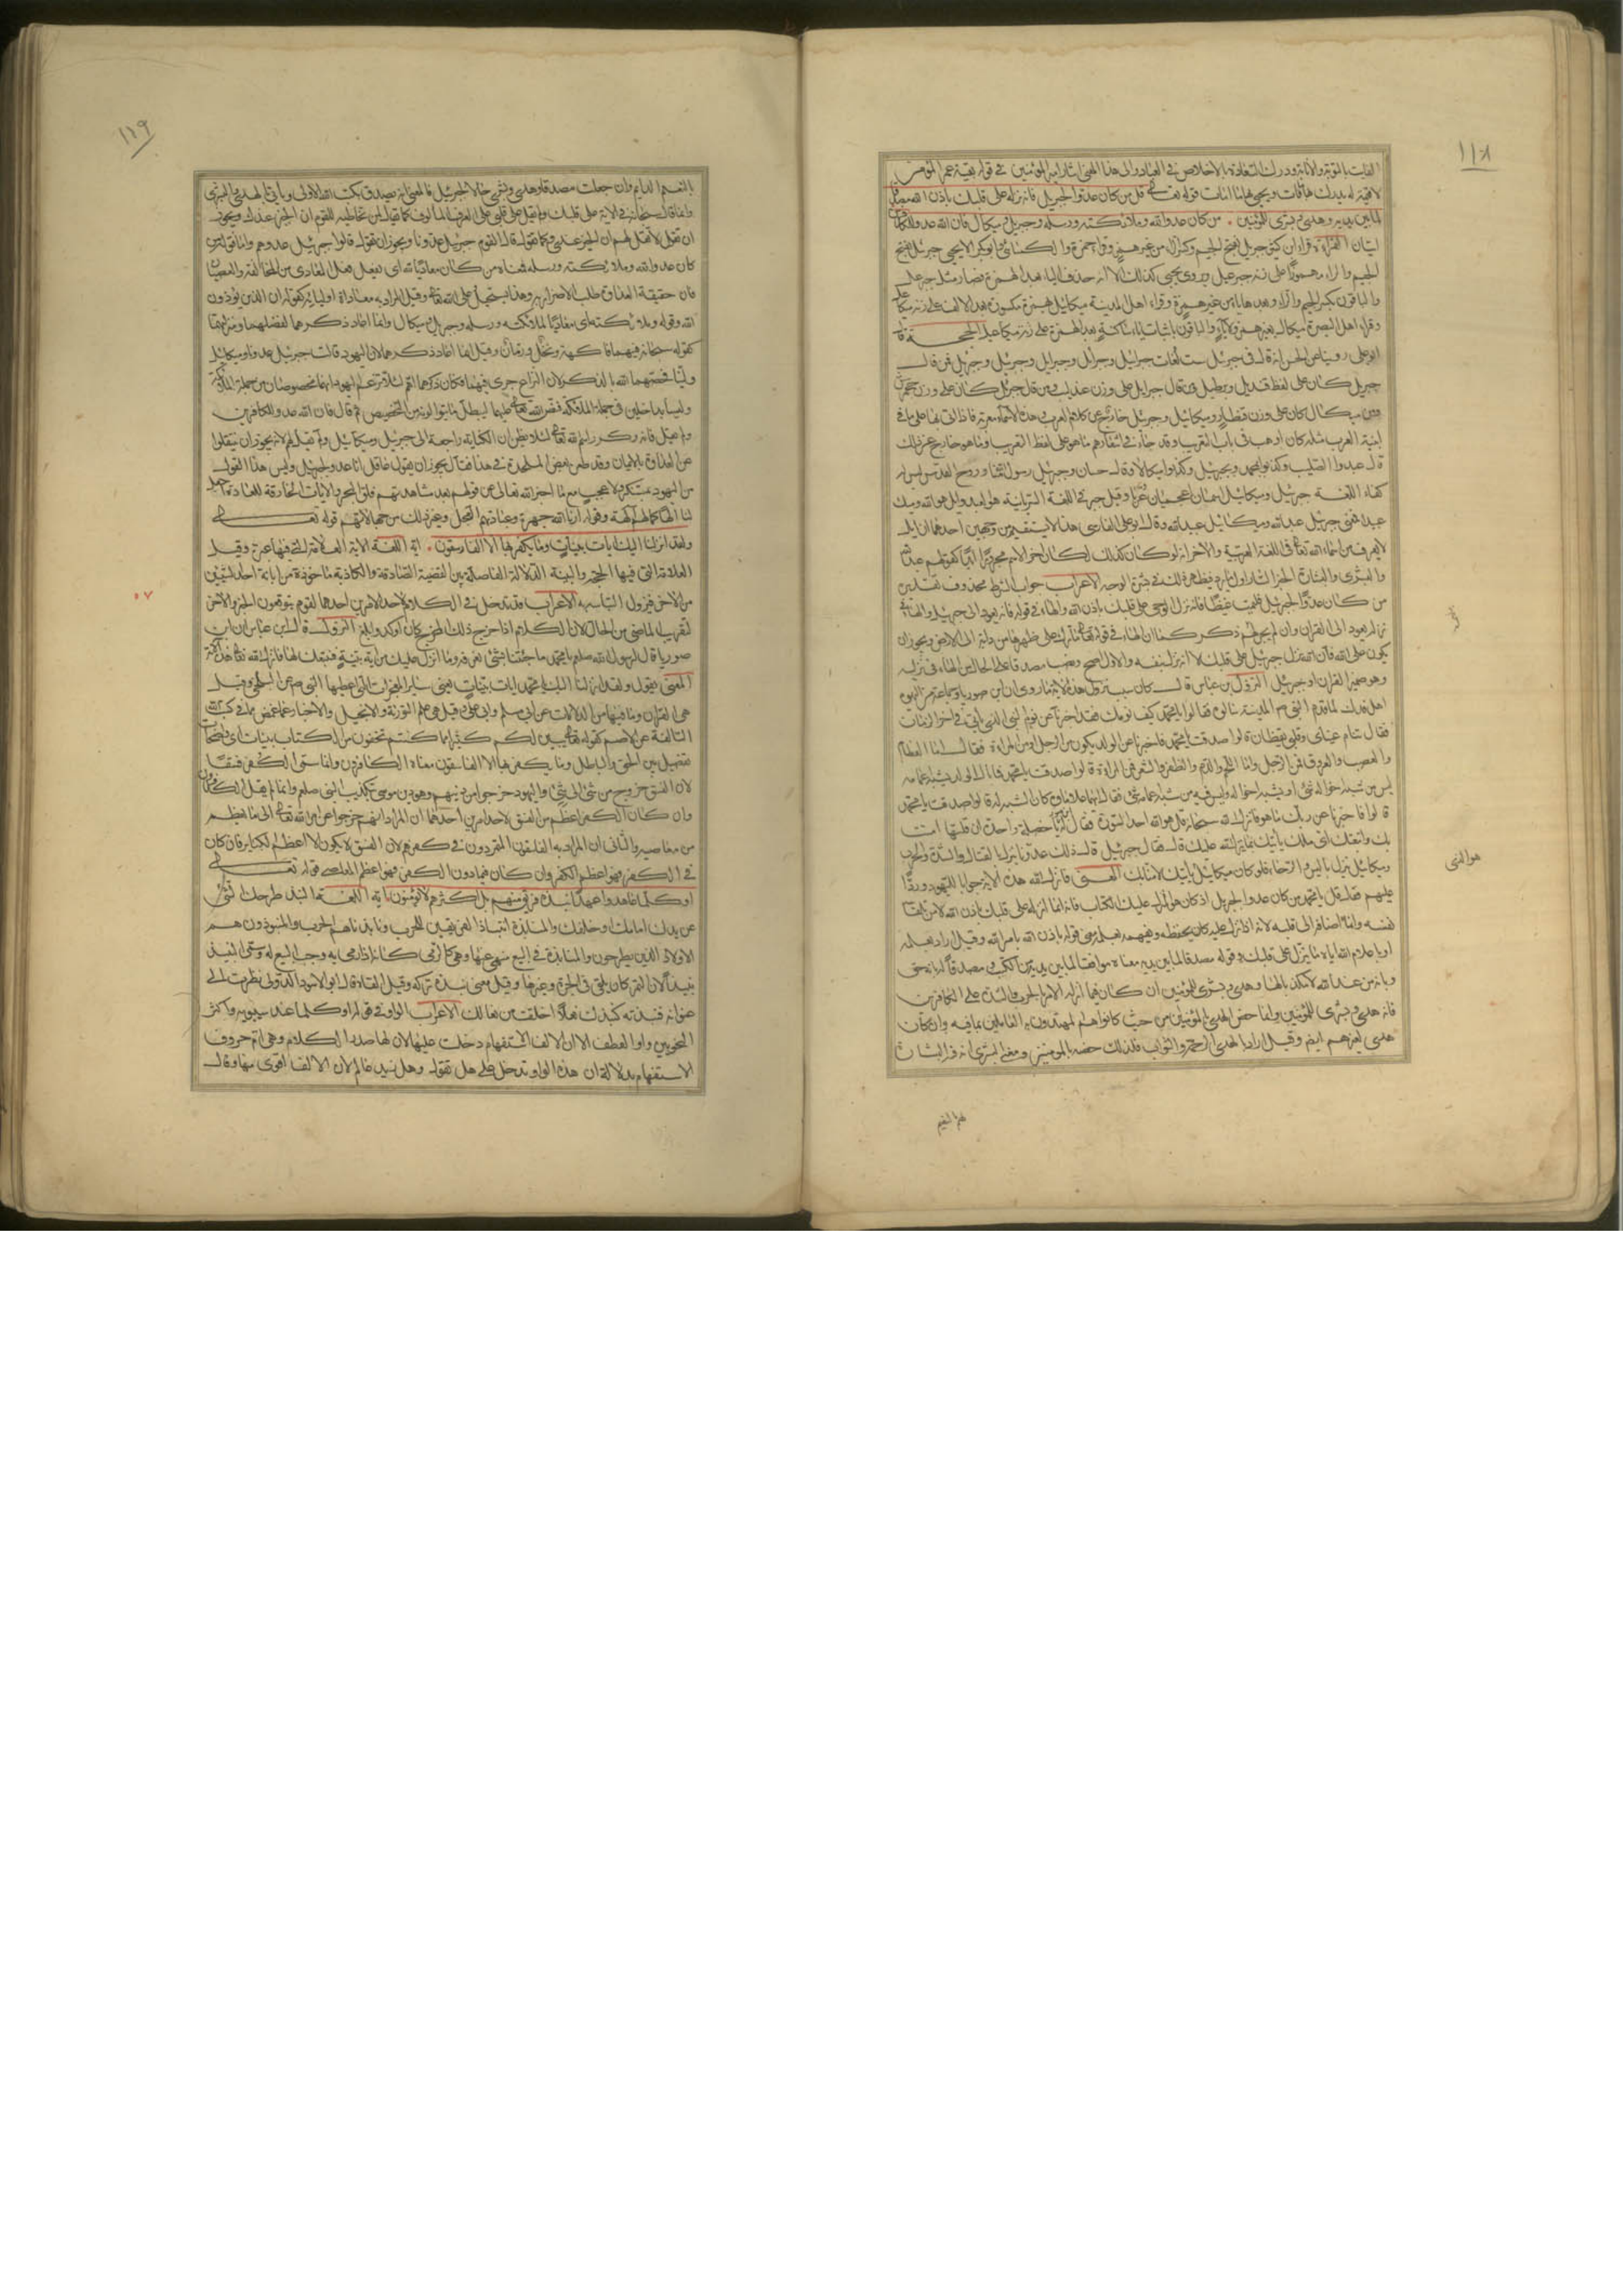 ١١٨
الفائت بالتوبة والانابة ودرك السعادة بالاخلاص في العبادة والى هذا المعنى اشار امير المؤمنين في قوله بقية عمر المؤمن
لا قيمة له يدرك بها ما فات ويحيي بها ما امات قوله تعالى قل من كان عدوا لجبريل فانه نزله على قلبك باذن الله مصدقا
لما بين يديه وهدى وبشرى للمؤمنين من كان عدوا لله وملائكته ورسله وجبريل وميكال فان الله عدو للكافرين
ايتان القراءة قرا ابن كثير جبريل بفتح الجيم وكسر الراء من غير همز وقرا حمزة والكسائي وابو بكر الا يحيى جبرئيل بفتح
الجيم والراء مهموزا على زنة جبرعيل وروى يحيى كذلك الا انه حذف الياء بعد الهمزة فصار مثل جبرعل
والباقون بكسر الجيم والراء وبعدها ياء من غير همزة وقرا اهل المدينة ميكائل بهمزة مكسورة بعد الالف على زنة ميكاعل
وقرا اهل البصرة ميكال بغير همز ولا ياء والباقون باثبات ياء ساكنة بعد الهمزة على زنة ميكاعيل الحجة قال
ابو علي روينا عن الحسن انه قال في جبريل ست لغات جبرائيل وجبرائل وجبرال وجبرئيل وجبريل فمن قال
جبريل كان على لفظ قنديل وبرطيل ومن قال جبرئل على وزن عندليب ومن قال جبرئل كان على وزن جحمرش
ومن قال ميكال كان على وزن قنطار وميكائيل وجبرئيل خارج عن كلام العرب
ابنية العرب مثله كان اوهب في باب التعريب وقد جاء في اشعارهم ما هو على لفظ التعريب وما هو خارج عن ذلك
قال عبدوا الصليب وكذبوا بمحمد وبجبرئيل وكذبوا ميكالا وقال حسان وجبرئيل رسول الله منا وروح القدس ليس له
كفاء اللغة جبرئيل وميكائيل اسمان اعجميان عربا وقيل جبر في اللغة السريانية هو العبد وايل هو الله وميك
عبيد فمعنى جبرئيل عبد الله وميكائيل عبيد الله وقال ابو علي الفارسي هذا لا يستقيم من وجهين احدهما ان ايل
لا يعرف من اسماء الله تعالى في اللغة العربية والاخر انه لو كان كذلك لكان اخر الاسم مجرورا ابدا كقولهم عبد الله
والبشرى والبشارة الخبر السار اول ما يرد فيظهر ذلك في بشرة الوجه الاعراب جواب الشرط محذوف تقديره
من كان عدوا لجبرئيل فليمت غيظا فانه نزل الوحي على قلبك باذن الله والهاء في قوله فانه يعود الى جبرئيل والهاء في
نزله يعود الى القران وان لم يجر له ذكر كما ان الهاء في قوله تعالى ما ترك على ظهرها من دابة الى الارض ويجوز ان
يكون على الله فان الله نزل جبرئيل على قلبك لا انه نزل بنفسه والاول اصح ونصب مصدقا على الحال من الهاء في نزله
وهو ضمير القران او جبرئيل النزول ابن عباس قال كان سبب نزول هذه الاية ما روي ان ابن صوريا وجماعة من اليهود
اهل فدك لما قدم النبي ص المدينة سالوه فقالوا يا محمد كيف نومك فقد اخبرنا عن نوم النبي الذي ياتي في اخر الزمان
فقال تنام عيناي وقلبي يقظان قالوا صدقت يا محمد فاخبرنا عن الولد يكون من الرجل او من المراة فقال اما العظام
والعصب والعروق فمن الرجل واما اللحم والدم والظفر والشعر فمن المراة قالوا صدقت يا محمد فما بال الولد يشبه اعمامه
ليس فيه من شبه اخواله شيء او يشبه اخواله وليس فيه من شبه اعمامه شيء فقال ايهما علا ماؤه كان الشبه له قالوا صدقت يا محمد
قالوا فاخبرنا عن ربك ما هو فانزل الله سبحانه قل هو الله احد السورة فقال له ابن صوريا خصلة واحدة ان قلتها امنت
بك واتبعتك اي ملك ياتيك بما ينزل الله عليك قال فقال جبرئيل قال ذلك عدونا ينزل بالقتال والشدة والحرب
وميكائيل ينزل باليسر والرخاء فلو كان ميكائيل ياتيك لامنا بك المعنى فانزل الله هذه الاية جوابا لليهود وردا
عليهم فقال قل يا محمد من كان عدوا لجبريل اذ كان هو المنزل عليك الكتاب فانه انما نزله على قلبك باذن الله لا من تلقاء
نفسه وانما اضافه الى قلبه لانه اذا نزل عليه كان يحفظه ويفهمه بقلبه ومعنى قوله باذن الله بامر الله وقيل اراد بعلمه
او باعلام الله اياه ما ينزل على قلبك وقوله مصدقا لما بين يديه معناه موافقا لما بين يديه من الكتب ومصدقا له بانه حق
وبانه من عند الله لا مكذبا لها وهدى وبشرى للمؤمنين ان كان فيما انزله الامر بالحرب والشدة على الكافرين
فانه هدى وبشرى للمؤمنين وانما خص الهدى بالمؤمنين من حيث كانوا هم المهتدون به العاملين بما فيه وان كان
هدى لغيرهم ايضا وقيل اراد بالهدى الرحمة والثواب فلذلك خصه بالمؤمنين ومعنى البشرى ان فيه البشارة
١١٩
بالنعيم الدايم وان جعلت مصدقا وهدى وبشرى حالا لجبرئيل فالمعنى انه يصدق بكتب الله الاولى وياتي بالهدى والبشرى
وانما قال سبحانه في الاية على قلبك ولم يقل على قلبي على العرف المالوف كما تقول لمن تخاطبه لا تقل للقوم ان الخبر عندك ويجوز
ان تقول لا تقل لهم ان الخبر عندي وكما تقول قال القوم جبرئيل عدونا ويجوز ان تقول قالوا جبرئيل عدوهم واما قوله من
كان عدوا لله وملائكته ورسله فمعناه من كان معاديا لله اي يفعل فعل المعادي من المخالفة والعصيان
فان حقيقة العداوة طلب الاضرار به وهذا يستحيل على الله تعالى وقيل المراد به معاداة اوليائه كقوله ان الذين يؤذون
الله وقوله وملائكته اي معاديا لملائكته ورسله وجبريل وميكال وانما اعاد ذكرهما لفضلهما ومنزلتهما
كقوله سبحانه فيهما فاكهة ونخل ورمان وقيل انما اعاد ذكرهما لان اليهود قالت جبرئيل عدونا وميكائيل
ولينا فخصهما الله بالذكر لان النزاع جرى فيهما فكان ذكرهما اهم لئلا تزعم اليهود انهما مخصوصان من جملة الملائكة
وليسا بداخلين في جملة الملائكة فنص الله تعالى عليهما ليبطل ما يتاولونه من التخصيص ثم قال فان الله عدو للكافرين
ولم يقل فانه وكرر اسم الله تعالى لئلا يظن ان الكناية راجعة الى جبرئيل وميكائيل ولم يقل لهم لانه يجوز ان ينتقلوا
عن العداوة بالايمان وقد طعن بعض الملحدة في هذا فقال يجوز ان يقول عاقل انا عدو لجبرئيل وليس هذا القول
من اليهود بمستنكر ولا عجب مع ما اخبر الله تعالى عن قولهم بعد مشاهدتهم فلق البحر والايات الخارقة للعادة اجعل
لنا الها كما لهم الهة وقولهم ارنا الله جهرة وعبادتهم العجل وغير ذلك من جهالاتهم قوله تعالى
ولقد انزلنا اليك ايات بينات وما يكفر بها الا الفاسقون اية اللغة الاية العلامة التي فيها عبرة وقيل
العلامة التي فيها الحجة والبينة الدلالة الفاصلة بين القضية الصادقة والكاذبة ماخوذة من ابانة احد الشيئين
من الاخر فيزول التباسه به الاعراب قد تدخل في الكلام لاحد الامرين احدهما لقوم يتوقعون الخبر والاخر
لتقريب الماضي من الحال لان الكلام اذا خرج ذلك المخرج كان اوكد وابلغ النزول قال ابن عباس ان ابن
صوريا قال لرسول الله صلعم يا محمد ما جئتنا بشيء نعرفه وما انزل عليك من اية بينة فنتبعك لها فانزل الله تعالى هذه الاية
المعنى يقول ولقد انزلنا اليك يا محمد ايات بينات يعني سائر المعجزات التي اعطيها النبي ص عن البلخي وقيل
هي القران وما فيها من الدلالات عن ابي مسلم وابي علي وقيل هي علم التورية والانجيل والاخبار عما غمض مما في كتب الله
السالفة عن الاصم كقوله تعالى يبين لكم كثيرا مما كنتم تخفون من الكتاب بينات اي واضحات
تفصل بين الحق والباطل وما يكفر بها الا الفاسقون معناه الكافرون وانما سمي الكفر فسقا
لان الفسق خروج من شيء الى شيء واليهود خرجوا من دينهم وهو دين موسى بتكذيب النبي صلعم وانما لم يقل الكافرون
وان كان الكفر اعظم من الفسق لاحد امرين احدهما ان المراد انهم خرجوا عن امر الله تعالى الى ما يعظم
من معاصيه والثاني ان المراد به الفاسقون المتمردون في كفرهم لان الفسق لا يكون الا اعظم الكبائر فان كان
في الكفر فهو اعظم الكفر وان كان فيما دون الكفر فهو اعظم المعاصي قوله تعالى
او كلما عاهدوا عهدا نبذه فريق منهم بل اكثرهم لا يؤمنون اية اللغة النبذ طرحك الشيء
عن يدك امامك او خلفك والمنابذة انتباذ الفريقين للحرب ونابذناهم الحرب والمنبوذون هم
الاولاد الذين يطرحون والمنابذة في البيع منهي عنها وهي كالرمي كانه اذا رمى به وجب البيع له وسمي النبيذ
نبيذا لان التمر كان يلقى في الجرة وغيرها وقيل معنى نبذه تركه وقيل القاه قال ابو الاسود الدؤلي نظرت الى
عنوانه فنبذته كنبذك نعلا اخلقت من نعالك الاعراب الواو في قوله او كلما عند سيبويه واكثر
النحويين واو العطف الا ان الالف الاستفهام دخلت عليها لان لها صدر الكلام وهي ام حروف
الاستفهام بدلالة ان هذه الواو تدخل على هل تقول وهل زيد عالم لان الالف اقوى منها وقال
٥٧